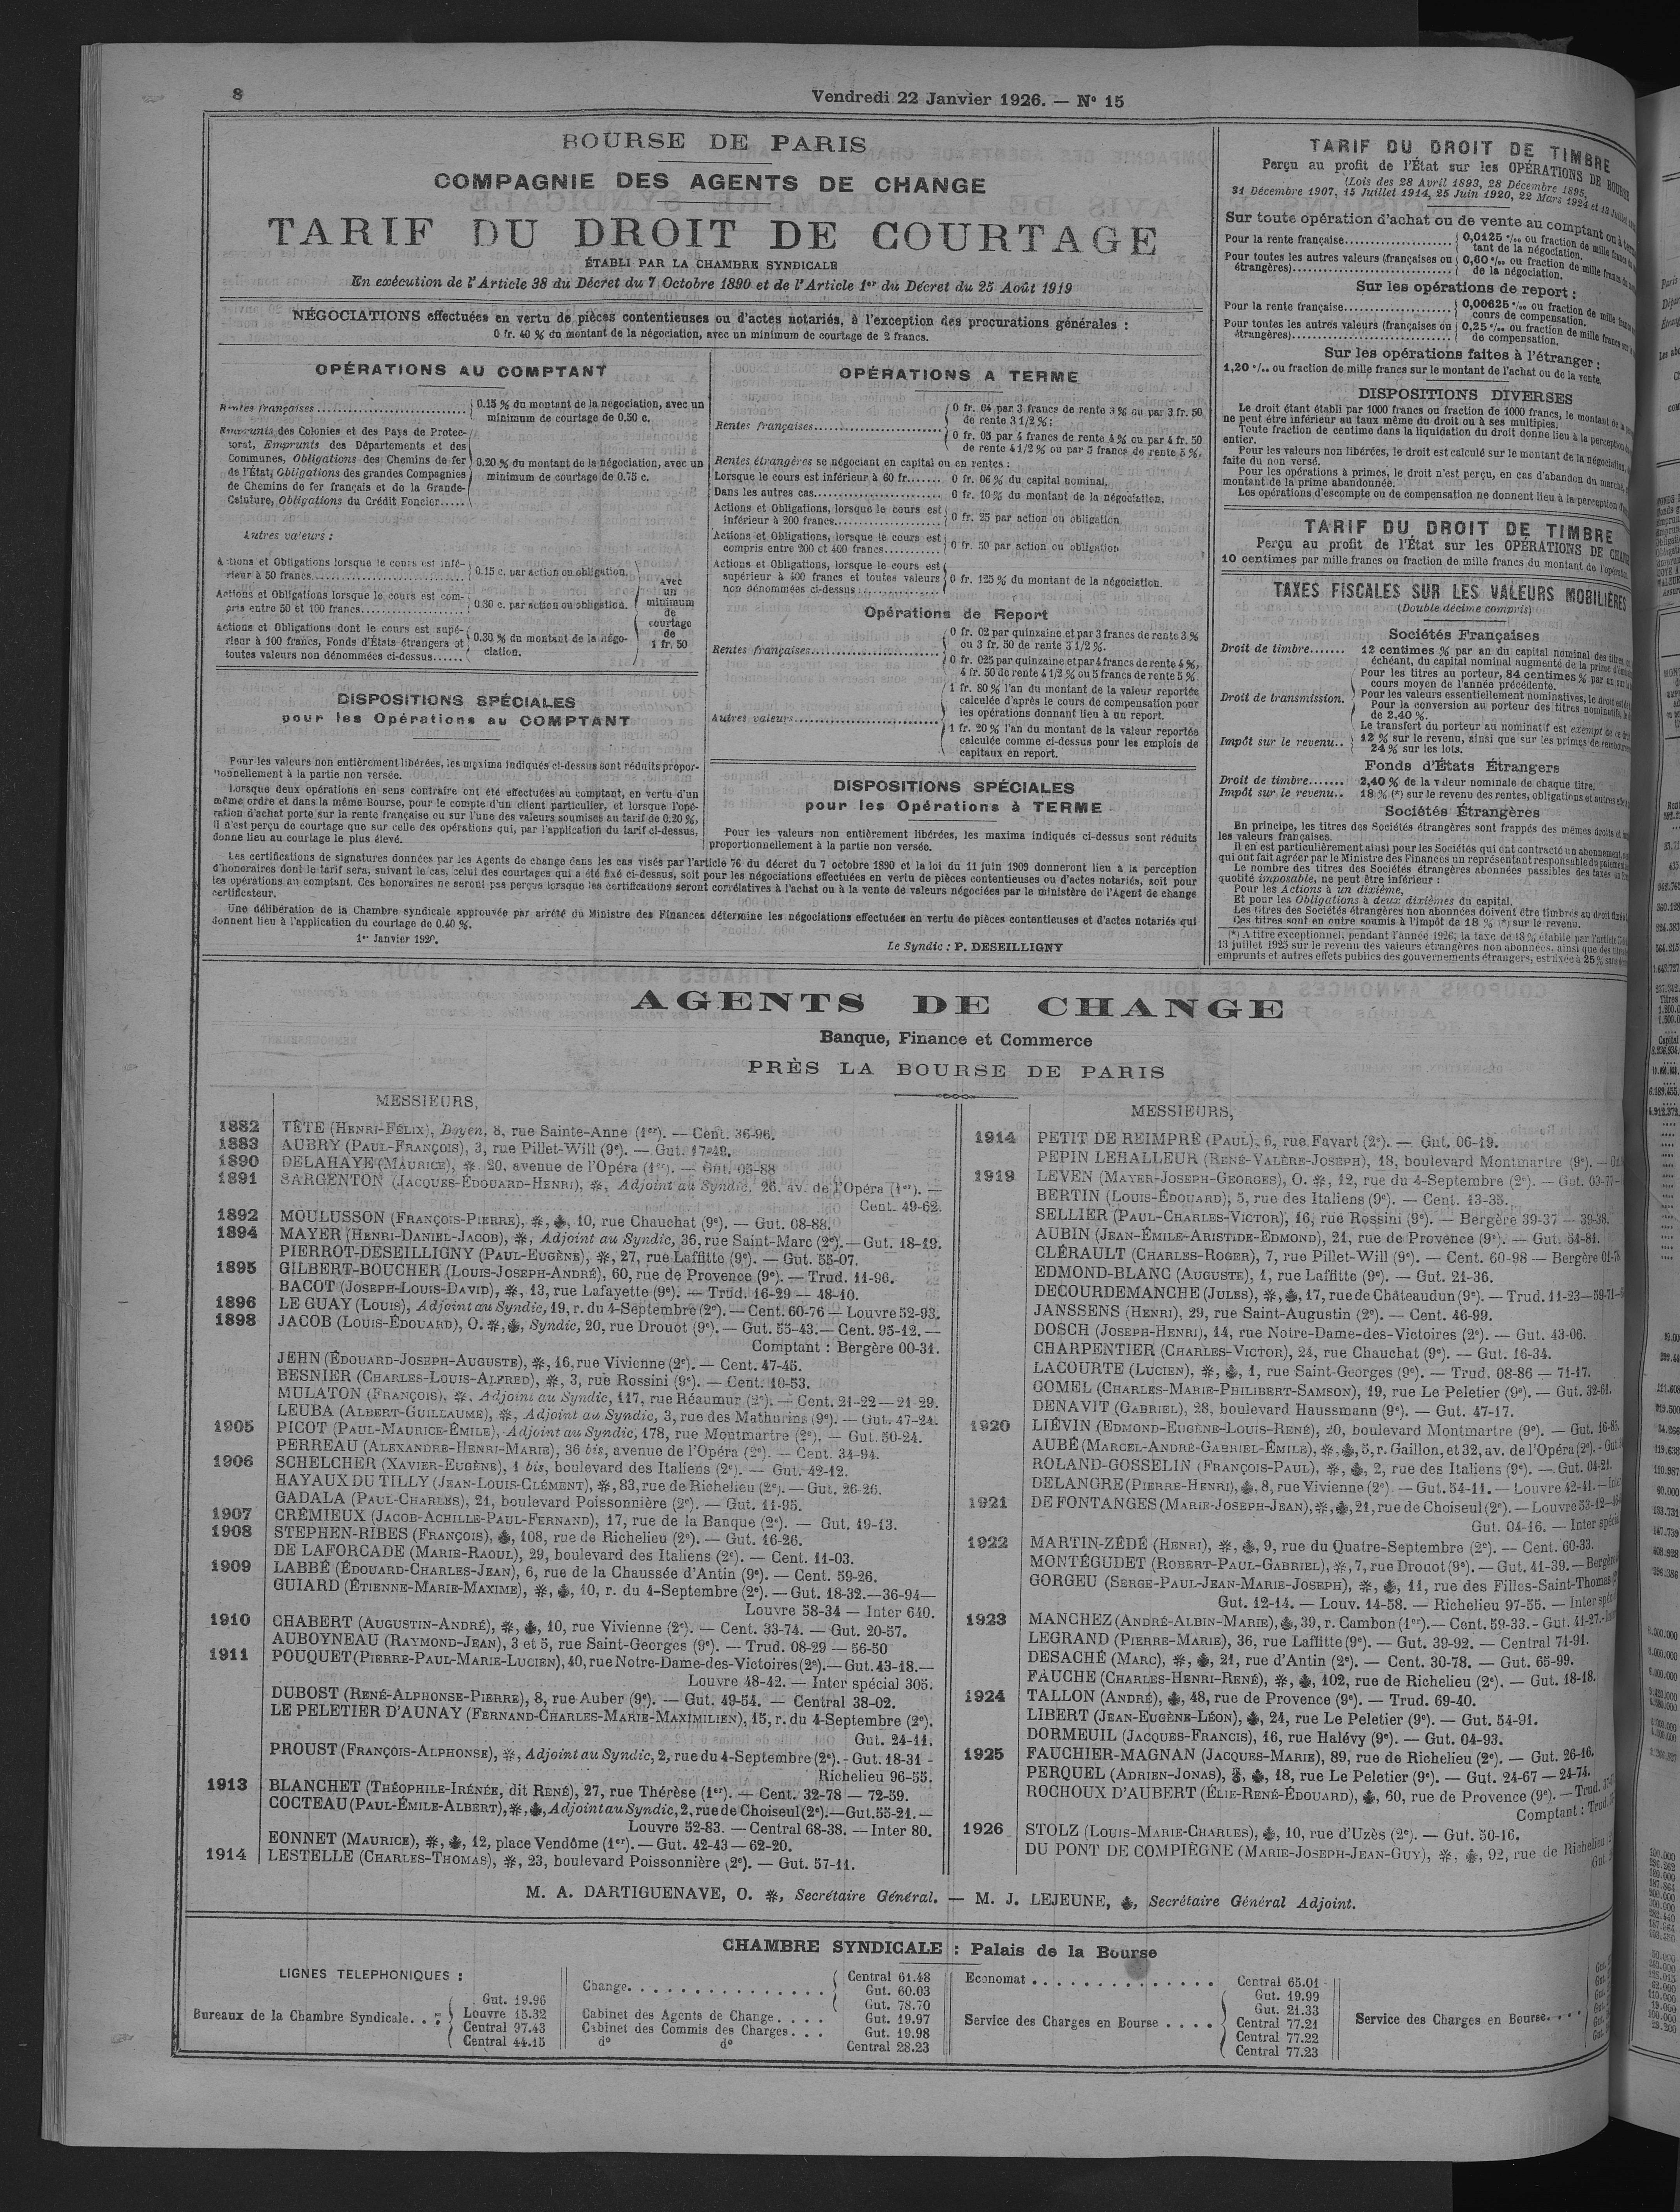 8
Vendredi 22 Janvier 1926. — N° 15
BOURSE DE PARIS
COMPAGNIE DES AGENTS DE CHANGE
TARIF DU DROIT DE COURTAGE
ÉTABLI PAR LA CHAMBRE SYNDICALE
En exécution de l'Article 38 du Décret du 7 Octobre 1890 et de l'Article 1er du Décret du 25 Août 1919
NÉGOCIATIONS effectuées en vertu de pièces contentieuses ou d'actes notariés, à l'exception des procurations générales :
0 fr. 40 % du montant de la négociation, avec un minimum de courtage de 2 francs.
OPÉRATIONS AU COMPTANT
Rentes françaises
0.15 % du montant de la négociation, avec un
minimum de courtage de 0.50 c.
Emprunts des Colonies et des Pays de Protec-
torat, Emprunts des Départements et des
Communes, Obligations des Chemins de fer
de l'État, Obligations des grandes Compagnies
de Chemins de fer français et de la Grande-
Ceinture, Obligations du Crédit Foncier.....
0.20 % du montant de la négociation, avec un
minimum de courtage de 0.75 c.
Autres valeurs :
Actions et Obligations lorsque le cours est infé-
rieur à 50 francs
0.15 c. par action ou obligation.
Actions et Obligations lorsque le cours est com-
pris entre 50 et 100 francs
0.30 c. par action ou obligation.
Actions et Obligations dont le cours est supé-
rieur à 100 francs, Fonds d'États étrangers et
toutes valeurs non dénommées ci-dessus......
0.30 % du montant de la négo-
ciation.
avec
un
minimum
de
courtage
de
1 fr. 50
DISPOSITIONS SPÉCIALES
pour les Opérations au COMPTANT
Pour les valeurs non entièrement libérées, les maxima indiqués ci-dessus sont réduits propor-
tionnellement à la partie non versée.
Lorsque deux opérations en sens contraire ont été effectuées au comptant, en vertu d'un
même ordre et dans la même Bourse, pour le compte d'un client particulier, et lorsque l'opé-
ration d'achat porte sur la rente française ou sur l'une des valeurs soumises au tarif de 0.20 %,
il n'est perçu de courtage que sur celle des opérations qui, par l'application du tarif ci-dessus,
donne lieu au courtage le plus élevé.
OPÉRATIONS A TERME
Rentes françaises
0 fr. 04 par 3 francs de rente 3 % ou par 3 fr. 50
de rente 3 1/2 % ;
0 fr. 05 par 4 francs de rente 4 % ou par 4 fr. 50
de rente 4 1/2 % ou par 5 francs de rente 5 %.
Rentes étrangères se négociant en capital ou en rentes :
Lorsque le cours est inférieur à 60 fr....... 0 fr. 06 % du capital nominal.
Dans les autres cas................ 0 fr. 10 % du montant de la négociation.
Actions et Obligations, lorsque le cours est
inférieur à 200 francs
0 fr. 25 par action ou obligation
Actions et Obligations, lorsque le cours est
compris entre 200 et 400 francs
0 fr. 50 par action ou obligation
Actions et Obligations, lorsque le cours est
supérieur à 400 francs et toutes valeurs
non dénommées ci-dessus
0 fr. 125 % du montant de la négociation.
Opérations de Report
Rentes françaises
0 fr. 02 par quinzaine et par 3 francs de rente 3 %
ou 3 fr. 50 de rente 3 1/2 %.
0 fr. 025 par quinzaine et par 4 francs de rente 4 %,
4 fr. 50 de rente 4 1/2 % ou 5 francs de rente 5 %.
Autres valeurs
1 fr. 80 % l'an du montant de la valeur reportée
calculée d'après le cours de compensation pour
les opérations donnant lieu à un report.
1 fr. 20 % l'an du montant de la valeur reportée
calculée comme ci-dessus pour les emplois de
capitaux en report.
DISPOSITIONS SPÉCIALES
pour les Opérations à TERME
Pour les valeurs non entièrement libérées, les maxima indiqués ci-dessus sont réduits
proportionnellement à la partie non versée.
Les certifications de signatures données par les Agents de change dans les cas visés par l'article 76 du décret du 7 octobre 1890 et la loi du 11 juin 1909 donneront lieu à la perception
d'honoraires dont le tarif sera, suivant le cas, celui des courtages qui a été fixé ci-dessus, soit pour les négociations effectuées en vertu de pièces contentieuses ou d'actes notariés, soit pour
les opérations au comptant. Ces honoraires ne seront pas perçus lorsque les certifications seront corrélatives à l'achat ou à la vente de valeurs négociées par le ministère de l'Agent de change
certificateur.
Une délibération de la Chambre syndicale approuvée par arrêté du Ministre des Finances détermine les négociations effectuées en vertu de pièces contentieuses et d'actes notariés qui
donnent lieu à l'application du courtage de 0.40 %.
1er Janvier 1920.
Le Syndic : P. DESEILLIGNY
TARIF DU DROIT DE TIMBRE
Perçu au profit de l'État sur les OPÉRATIONS DE BOURSE
(Lois des 28 Avril 1893, 28 Décembre 1895,
31 Décembre 1907, 15 Juillet 1914, 25 Juin 1920, 22 Mars 1924 et 13
Sur toute opération d'achat ou de vente au comptant ou à
Pour la rente française
0,0125 °/oo ou fraction de mille francs
tant de la négociation.
Pour toutes les autres valeurs (françaises ou
étrangères)
0,60 °/oo ou fraction de mille francs
de la négociation.
Sur les opérations de report :
Pour la rente française
0,00625 °/oo ou fraction de mille
cours de compensation.
Pour toutes les autres valeurs (françaises ou
étrangères)
0,25 °/oo ou fraction de mille francs
de compensation.
Sur les opérations faites à l'étranger :
1,20 °/oo ou fraction de mille francs sur le montant de l'achat ou de la vente.
DISPOSITIONS DIVERSES
Le droit étant établi par 1000 francs ou fraction de 1000 francs, le montant de la
ne peut être inférieur au taux même du droit ou à ses multiples.
Toute fraction de centime dans la liquidation du droit donne lieu à la perception
entier.
Pour les valeurs non libérées, le droit est calculé sur le montant de la négociation,
faite du non versé.
Pour les opérations à primes, le droit n'est perçu, en cas d'abandon du marché,
montant de la prime abandonnée.
Les opérations d'escompte ou de compensation ne donnent lieu à la perception
TARIF DU DROIT DE TIMBRE
Perçu au profit de l'État sur les OPÉRATIONS DE
10 centimes par mille francs ou fraction de mille francs du montant de l'opération
TAXES FISCALES SUR LES VALEURS MOBILIÈRES
(Double décime compris)
Sociétés Françaises
Droit de timbre....... 12 centimes % par an du capital nominal des titres
échéant, du capital nominal augmenté de la prime
Droit de transmission.
Pour les titres au porteur, 84 centimes % par an sur le
cours moyen de l'année précédente.
Pour les valeurs essentiellement nominatives, le droit est
Pour la conversion au porteur des titres nominatifs,
de 2,40 %.
Le transfert du porteur au nominatif est exempt de
Impôt sur le revenu..
12 % sur le revenu, ainsi que sur les primes de
24 % sur les lots.
Fonds d'États Étrangers
Droit de timbre....... 2,40 % de la valeur nominale de chaque titre.
Impôt sur le revenu.. 18 % (*) sur le revenu des rentes, obligations et autres
Sociétés Étrangères
En principe, les titres des Sociétés étrangères sont frappés des mêmes droits
les valeurs françaises.
Il en est particulièrement ainsi pour les Sociétés qui ont contracté un abonnement
qui ont fait agréer par le Ministre des Finances un représentant responsable du
Le nombre des titres des Sociétés étrangères abonnées passibles des taxes
quotité imposable, ne peut être inférieur :
Pour les Actions à un dixième,
Et pour les Obligations à deux dixièmes du capital.
Les titres des Sociétés étrangères non abonnées doivent être timbrés au droit
Ces titres sont en outre soumis à l'impôt de 18 % (*) sur le revenu.
(*) A titre exceptionnel, pendant l'année 1926, la taxe de 18 % établie par l'article
13 juillet 1925 sur le revenu des valeurs étrangères non abonnées, ainsi que des
emprunts et autres effets publics des gouvernements étrangers, est fixée à 25 %
AGENTS DE CHANGE
Banque, Finance et Commerce
PRÈS LA BOURSE DE PARIS
MESSIEURS,
1882 TÊTE (Henri-Félix), Doyen, 8, rue Sainte-Anne (1er). — Cent. 36-96.
1883 AUBRY (Paul-François), 3, rue Pillet-Will (9e). — Gut. 17-49.
1890 DELAHAYE (Maurice), ✻, 20, avenue de l'Opéra (1er). — Gut. 05-88
1891 SARGENTON (Jacques-Édouard-Henri), ✻, Adjoint au Syndic, 26, av. de l'Opéra (1er). —
Cent. 49-62.
1892 MOULUSSON (François-Pierre), ✻, ❦, 10, rue Chauchat (9e). — Gut. 08-88.
1894 MAYER (Henri-Daniel-Jacob), ✻, Adjoint au Syndic, 36, rue Saint-Marc (2e). — Gut. 18-19.
PIERROT-DESEILLIGNY (Paul-Eugène), ✻, 27, rue Laffitte (9e). — Gut. 55-07.
1895 GILBERT-BOUCHER (Louis-Joseph-André), 60, rue de Provence (9e). — Trud. 11-96.
BACOT (Joseph-Louis-David), ✻, 13, rue Lafayette (9e). — Trud. 16-29 — 48-10.
1896 LE GUAY (Louis), Adjoint au Syndic, 19, r. du 4-Septembre (2e). — Cent. 60-76 — Louvre 52-93.
1898 JACOB (Louis-Édouard), O. ✻, ❦, Syndic, 20, rue Drouot (9e). — Gut. 55-43. — Cent. 95-12. —
Comptant : Bergère 00-31.
JEHN (Édouard-Joseph-Auguste), ✻, 16, rue Vivienne (2e). — Cent. 47-45.
BESNIER (Charles-Louis-Alfred), ✻, 3, rue Rossini (9e). — Cent. 10-53.
MULATON (François), ✻, Adjoint au Syndic, 117, rue Réaumur (2e). — Cent. 21-22 — 21-29.
LEUBA (Albert-Guillaume), ✻, Adjoint au Syndic, 3, rue des Mathurins (9e). — Gut. 47-24.
1905 PICOT (Paul-Maurice-Émile), Adjoint au Syndic, 178, rue Montmartre (2e). — Gut. 50-24.
PERREAU (Alexandre-Henri-Marie), 36 bis, avenue de l'Opéra (2e). — Cent. 34-94.
1906 SCHELCHER (Xavier-Eugène), 1 bis, boulevard des Italiens (2e). — Gut. 42-12.
HAYAUX DU TILLY (Jean-Louis-Clément), ✻, 83, rue de Richelieu (2e). — Gut. 26-26.
GADALA (Paul-Charles), 21, boulevard Poissonnière (2e). — Gut. 11-95.
1907 CRÉMIEUX (Jacob-Achille-Paul-Fernand), 17, rue de la Banque (2e). — Gut. 19-13.
1908 STEPHEN-RIBES (François), ❦, 108, rue de Richelieu (2e). — Gut. 16-26.
DE LAFORCADE (Marie-Raoul), 29, boulevard des Italiens (2e). — Cent. 11-03.
1909 LABBÉ (Édouard-Charles-Jean), 6, rue de la Chaussée d'Antin (9e). — Cent. 59-26.
GUIARD (Étienne-Marie-Maxime), ✻, ❦, 10, r. du 4-Septembre (2e). — Gut. 18-32. — 36-94 —
Louvre 58-34 — Inter 640.
1910 CHABERT (Augustin-André), ✻, ❦, 10, rue Vivienne (2e). — Cent. 33-74. — Gut. 20-57.
AUBOYNEAU (Raymond-Jean), 3 et 5, rue Saint-Georges (9e). — Trud. 08-29 — 56-50
1911 POUQUET (Pierre-Paul-Marie-Lucien), 40, rue Notre-Dame-des-Victoires (2e). — Gut. 43-18. —
Louvre 48-42. — Inter spécial 305.
DUBOST (René-Alphonse-Pierre), 8, rue Auber (9e). — Gut. 49-54. — Central 38-02.
LE PELETIER D'AUNAY (Fernand-Charles-Marie-Maximilien), 15, r. du 4-Septembre (2e).
Gut. 24-11.
PROUST (François-Alphonse), ✻, Adjoint au Syndic, 2, rue du 4-Septembre (2e). - Gut. 18-31 -
Richelieu 96-55.
1913 BLANCHET (Théophile-Irénée, dit René), 27, rue Thérèse (1er). — Cent. 32-78 — 72-59.
COCTEAU (Paul-Émile-Albert), ✻, ❦, Adjoint au Syndic, 2, rue de Choiseul (2e). — Gut. 55-21. —
Louvre 52-83. — Central 68-38. — Inter 80.
EONNET (Maurice), ✻, ❦, 12, place Vendôme (1er). — Gut. 42-43 — 62-20.
1914 LESTELLE (Charles-Thomas), ✻, 23, boulevard Poissonnière (2e). — Gut. 57-11.
MESSIEURS,
1914 PETIT DE REIMPRÉ (Paul), 6, rue Favart (2e). — Gut. 06-19.
PEPIN LEHALLEUR (René-Valère-Joseph), 18, boulevard Montmartre (9e). —
1919 LEVEN (Mayer-Joseph-Georges), O. ✻, 12, rue du 4-Septembre (2e). — Gut. 03-77
BERTIN (Louis-Édouard), 5, rue des Italiens (9e). — Cent. 13-35.
SELLIER (Paul-Charles-Victor), 16, rue Rossini (9e). — Bergère 39-37 — 39-38.
AUBIN (Jean-Émile-Aristide-Edmond), 21, rue de Provence (9e). — Gut. 54-81.
CLÉRAULT (Charles-Roger), 7, rue Pillet-Will (9e). — Cent. 60-98 — Bergère
EDMOND-BLANC (Auguste), 1, rue Laffitte (9e). — Gut. 21-36.
DECOURDEMANCHE (Jules), ✻, ❦, 17, rue de Châteaudun (9e). — Trud. 11-23 — 59-71
JANSSENS (Henri), 29, rue Saint-Augustin (2e). — Cent. 46-99.
DOSCH (Joseph-Henri), 14, rue Notre-Dame-des-Victoires (2e). — Gut. 43-06.
CHARPENTIER (Charles-Victor), 24, rue Chauchat (9e). — Gut. 16-34.
LACOURTE (Lucien), ✻, ❦, 1, rue Saint-Georges (9e). — Trud. 08-86 — 71-17.
GOMEL (Charles-Marie-Philibert-Samson), 19, rue Le Peletier (9e). — Gut. 32-61.
DENAVIT (Gabriel), 28, boulevard Haussmann (9e). — Gut. 47-17.
1920 LIÉVIN (Edmond-Eugène-Louis-René), 20, boulevard Montmartre (9e). — Gut. 16-85.
AUBÉ (Marcel-André-Gabriel-Émile), ✻, ❦, 5, r. Gaillon, et 32, av. de l'Opéra (2e). -
ROLAND-GOSSELIN (François-Paul), ✻, ❦, 2, rue des Italiens (9e). — Gut. 04-21.
DELANGRE (Pierre-Henri), ❦, 8, rue Vivienne (2e). — Gut. 54-11. — Louvre 42-41. —
1921 DE FONTANGES (Marie-Joseph-Jean), ✻, ❦, 21, rue de Choiseul (2e). — Louvre 53-12 —
Gut. 04-16. — Inter spécial
1922 MARTIN-ZÉDÉ (Henri), ✻, ❦, 9, rue du Quatre-Septembre (2e). — Cent. 60-33.
MONTÉGUDET (Robert-Paul-Gabriel), ✻, 7, rue Drouot (9e). — Gut. 41-39. — Bergère
GORGEU (Serge-Paul-Jean-Marie-Joseph), ✻, ❦, 11, rue des Filles-Saint-Thomas
Gut. 12-14. — Louv. 14-58. — Richelieu 97-55. — Inter
1923 MANCHEZ (André-Albin-Marie), ❦, 39, r. Cambon (1er). — Cent. 59-33. - Gut. 41-27. -
LEGRAND (Pierre-Marie), 36, rue Laffitte (9e). — Gut. 39-92. — Central 71-91.
DESACHÉ (Marc), ✻, ❦, 21, rue d'Antin (2e). — Cent. 30-78. — Gut. 65-99.
FAUCHE (Charles-Henri-René), ✻, ❦, 102, rue de Richelieu (2e). — Gut. 18-18.
1924 TALLON (André), ❦, 48, rue de Provence (9e). — Trud. 69-40.
LIBERT (Jean-Eugène-Léon), ❦, 24, rue Le Peletier (9e). — Gut. 54-91.
DORMEUIL (Jacques-Francis), 16, rue Halévy (9e). — Gut. 04-93.
1925 FAUCHIER-MAGNAN (Jacques-Marie), 89, rue de Richelieu (2e). — Gut. 26-16.
PERQUEL (Adrien-Jonas), ❦, 18, rue Le Peletier (9e). — Gut. 24-67 — 24-74.
ROCHOUX D'AUBERT (Élie-René-Édouard), ❦, 60, rue de Provence (9e). — Trud.
Comptant : Trud.
1926 STOLZ (Louis-Marie-Charles), ❦, 10, rue d'Uzès (2e). — Gut. 50-16.
DU PONT DE COMPIÈGNE (Marie-Joseph-Jean-Guy), ✻, ❦, 92, rue de Richelieu
Gut.
M. A. DARTIGUENAVE, O. ✻, Secrétaire Général. — M. J. LEJEUNE, ❦, Secrétaire Général Adjoint.
CHAMBRE SYNDICALE : Palais de la Bourse
LIGNES TELEPHONIQUES :
Bureaux de la Chambre Syndicale
Gut. 19.96
Louvre 15.32
Central 97.43
Central 44.15
Change
Central 61.48
Gut. 60.03
Gut. 78.70
Cabinet des Agents de Change.... Gut. 19.97
Cabinet des Commis des Charges... Gut. 19.98
d° d° Central 28.23
Economat
Central 65.01
Gut. 19.99
Service des Charges en Bourse
Gut. 21.33
Central 77.21
Central 77.22
Central 77.23
Service des Charges en Bourse.